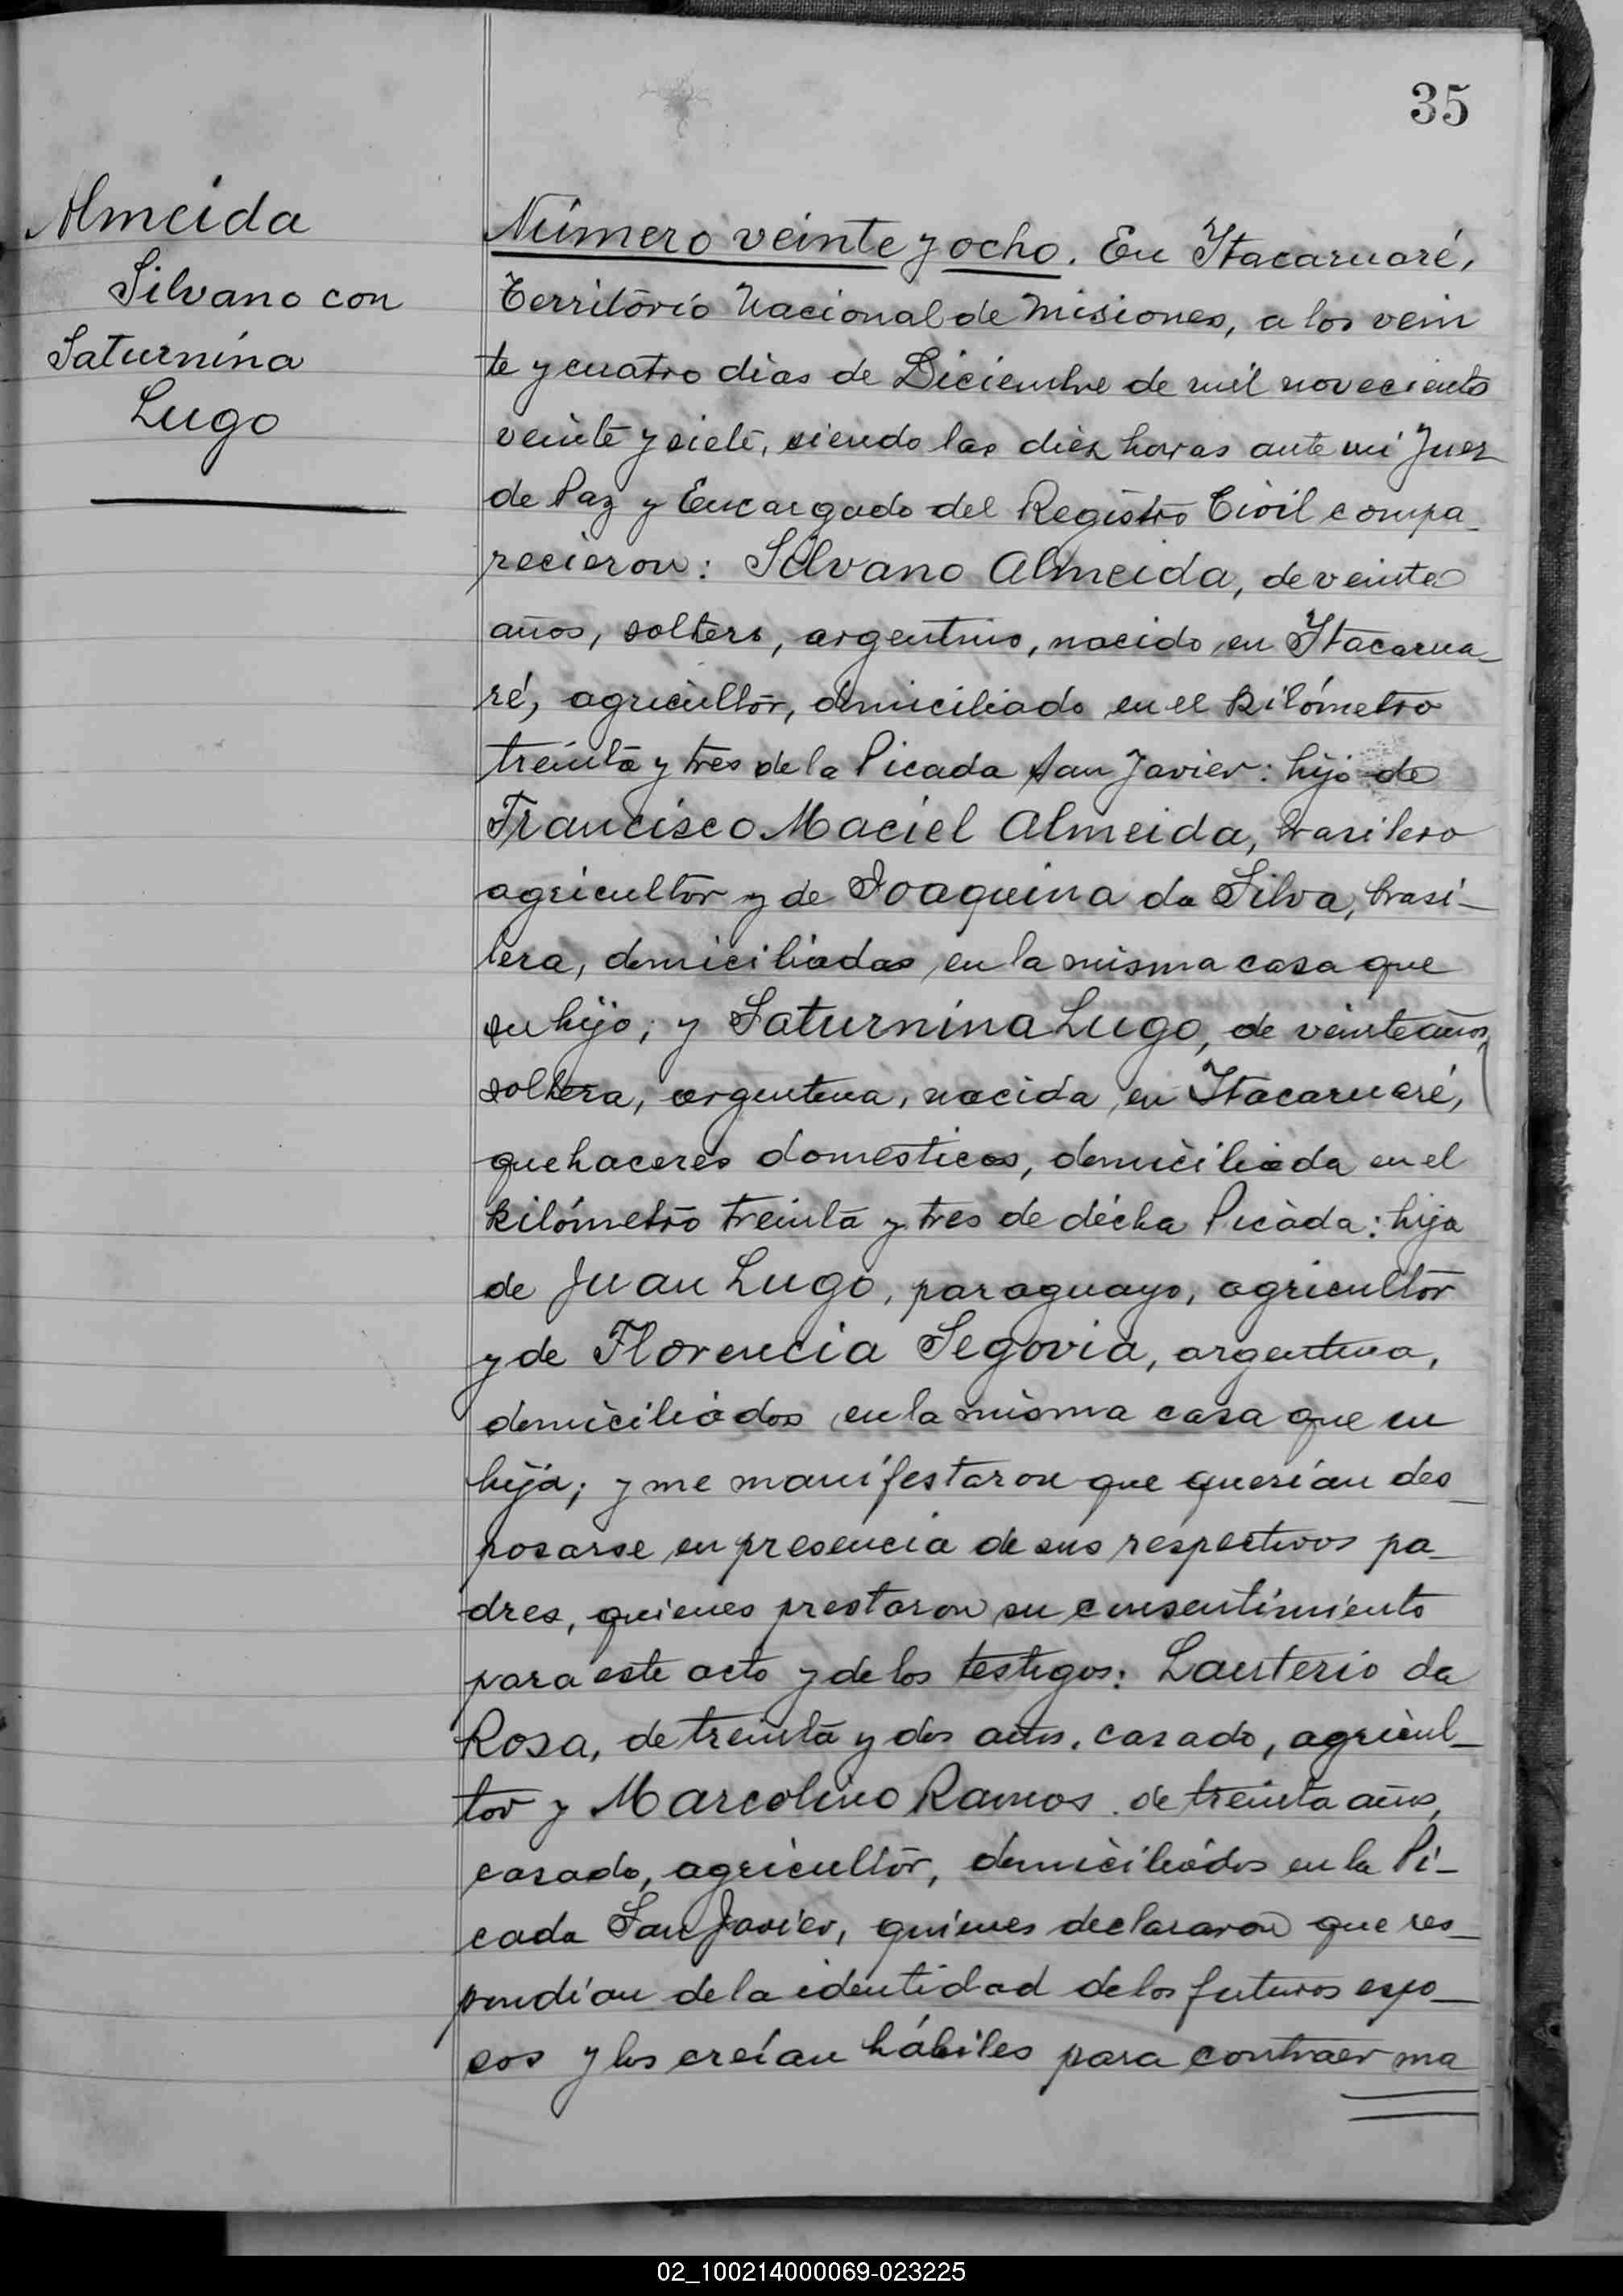 35
Almeida
Silvano con
Saturnina
Lugo
Número veinte y ocho. En Itacaruaré,
Territorio Nacional de Misiones, a los vein
te y cuatro dias de Diciembre de mil novecientos
veinte y siete, siendo las diez horas ante mi Juez
de Paz y Encargado del Registro Civil compa-
recieron: Silvano Almeida, de veinte
años, soltero, argentino, nacido en Itacarua-
ré, agricultor, domiciliado en el kilómetro
treinta y tres de la Picada San Javier: hijo de
Francisco Maciel Almeida, brasilero
agricultor y de Joaquina da Silva, brasi-
lera, domiciliados en la misma casa que
su hijo; y Saturnina Lugo, de veinte años,
soltera, argentina, nacida en Itacaruaré,
quehaceres domesticos, domiciliada en el
kilómetro treinta y tres de dicha Picada: hija
de Juan Lugo, paraguayo, agricultor
y de Florencia Segovia, argentina,
domiciliados en la misma casa que su
hija; y me manifestaron que querían des-
posarse en presencia de sus respectivos pa-
dres, quienes prestaron su consentimiento
para este acto y de los testigos: Lauterio da
Rosa, de treinta y dos años, casado, agricul-
tor y Marcolino Ramos de treinta años,
casado, agricultor, domiciliados en la Pi-
cada San Javier, quienes declararon que res-
pondían de la identidad de los futuros espo-
sos y los creían hábiles para contraer ma
02_100214000069-023225